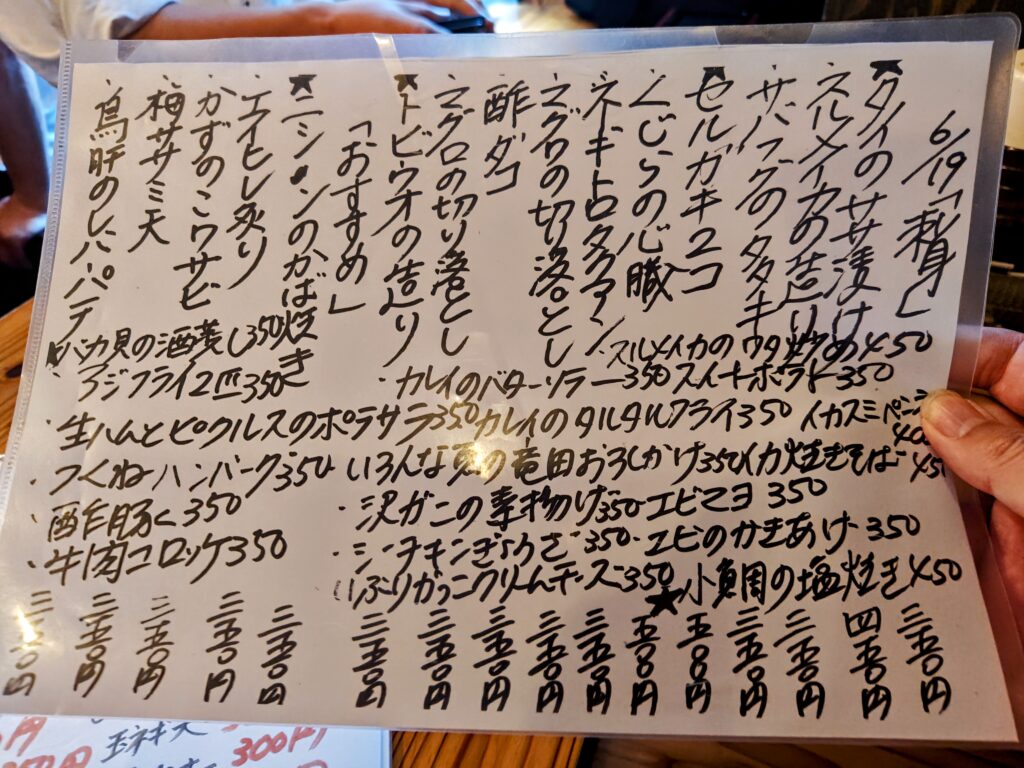 6/19「刺身」
★タイのササ漬け 三五〇円
・スルメイカの造り 四五〇円
・サバフグのタタキ 三五〇円
★セルガキ2コ 三五〇円
・くじらの心臓 五〇〇円
・ネギトロタクアン 五〇〇円
・マグロの切り落とし 三五〇円
・酢ダコ 三五〇円
・マグロの切り落とし 三五〇円
★トビウオの造り 三五〇円
「おすすめ」
★ニシンのかば焼き 三五〇円
・エイヒレ炙り 三五〇円
・かずのこワサビ 三五〇円
・梅ササミ天 三五〇円
・鳥肝のレバパテ
・バカ貝の酒蒸し350
・スルメイカのワタ炒め450
・アジフライ2匹350
・カレイのバターソテー350
スイートポテト350
・生ハムとピクルスのポテサラ350
カレイのタルタルフライ350
イカスミペンネ
・つくねハンバーグ350
・いろんな魚の竜田おろしかけ350
イカ焼きそば450
・酢豚く350
・沢ガニの素揚げ350
・エビマヨ350
・牛肉コロッケ350
・シーチキンぎょうざ350
・エビのかきあげ350
いぶりがっこクリームチーズ350
★小鯛の塩焼き450
玉ネギ天
300円